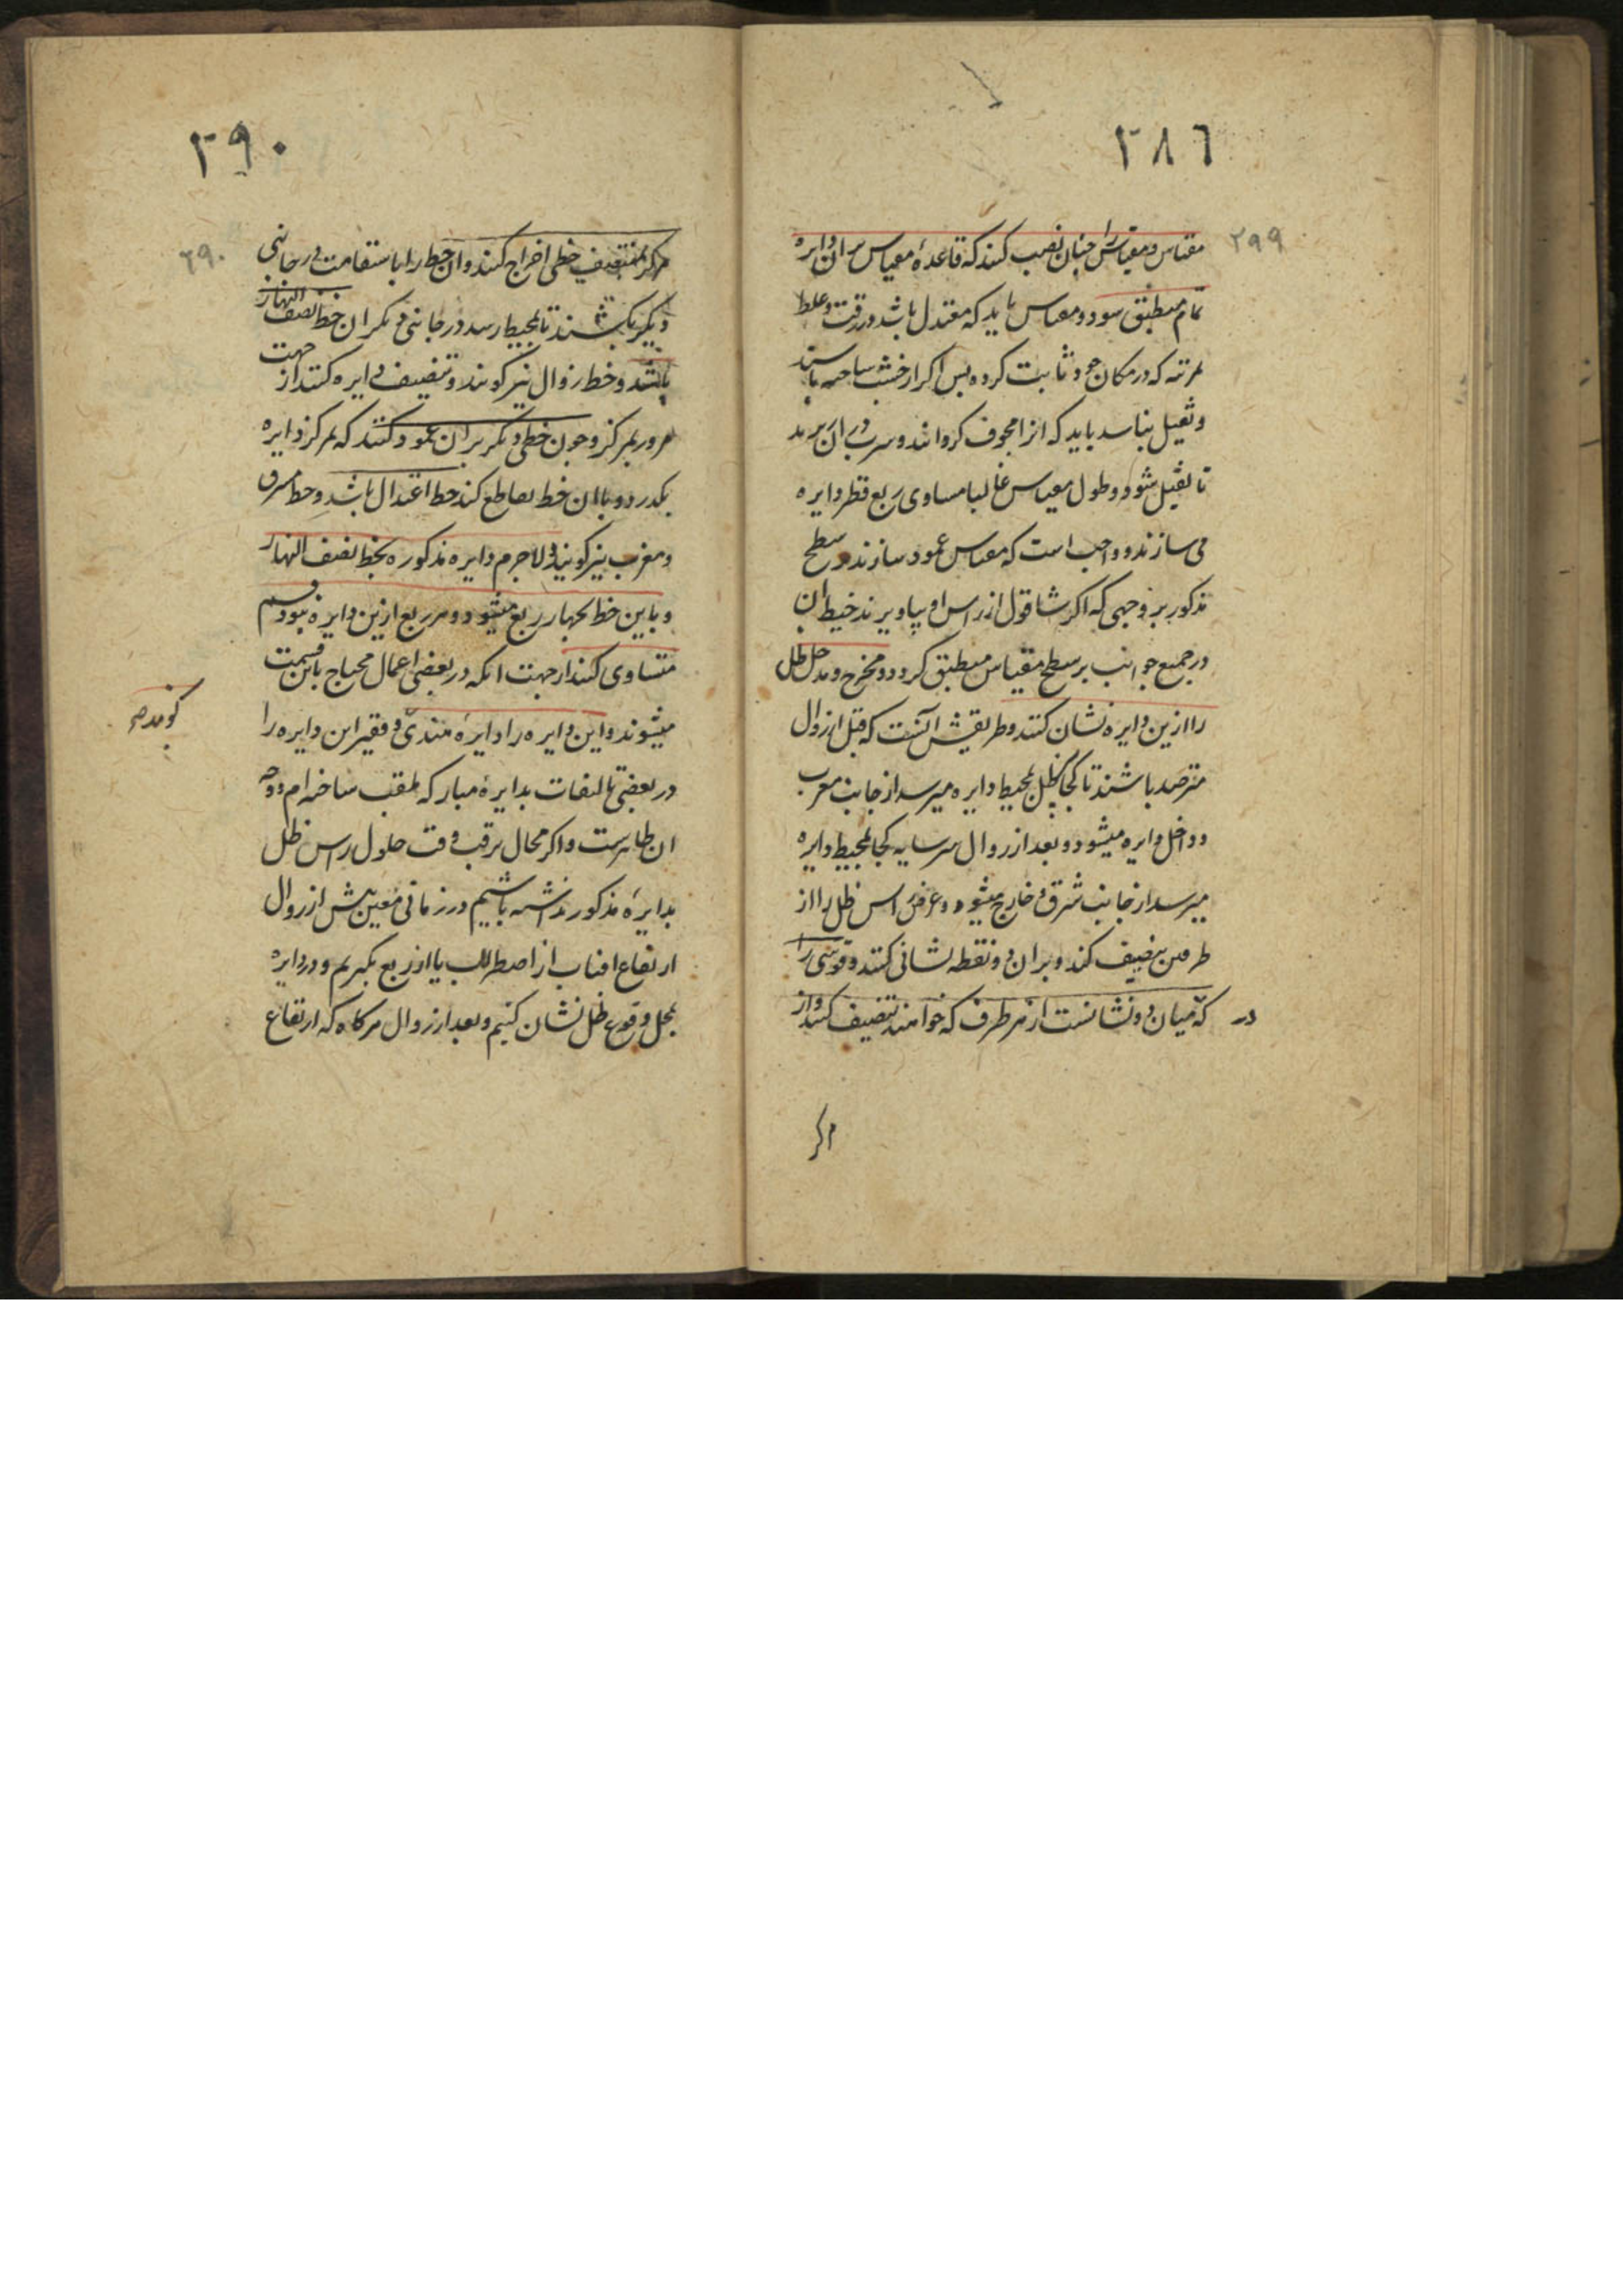 ۲۸۶
۲۹۹
مقیاس و مقیاس را چنان نصب کنند که قاعدهٔ مقیاس بران دایره
تمام منطبق شود و مقیاس باید که معتدل باشد در رقت و غلظ
که در مکان خود ثابت کرده پس اکر از خشب ساخته باشند
و ثقیل نباشد باید که انرا مجوف کردانند و سرب دران ریزند
تا ثقیل شود و طول مقیاس غالبا مساوی ربع قطر دایره
می سازند و واجب است که مقیاس عمود سازند در سطح
مذکور بر وجهی که اکر شاقول از راس او بیاویزند خیط ان
در جمیع جوانب بر سطح مقیاس منطبق کردد و مخرج و مدخل ظل
را ازین دایره نشان کنند و طریقش آنست که قبل از زوال
مترصد باشند تا کجا ظل بمحیط دایره میرسد از جانب مغرب
و داخل دایره میشود و بعد از زوال سر سایه کجا بمحیط دایره
میرسد از جانب شرق و خارج میشود و عرض راس ظل را از
طرفین تنصیف کند و بران دو نقطه نشانی کنند و قوسی را
در که میان دو نشانست از هر طرف که خواهند تنصیف کنند و از
مرکز
۲۹۰
۲۹۰
مرکز بمنتصف خطی اخراج کنند و ان خط را باستقامت در جانبی
دیکر بکشند تا بمحیط رسد در جانبی دیکر ان خط نصف النهار
باشد و خط زوال نیز کویند و تنصیف دایره کنند از جهت
مرور بمرکز و چون خطی دیکر بران عمود کنند که بمرکز دایره
بکذرد و با ان خط تقاطع کند خط اعتدال باشد و خط مشرق
و مغرب نیز کویند و لاجرم دایره مذکوره بخط نصف النهار
و باین خط بچهار ربع میشود و هر ربع ازین دایره نبود قسم
متساوی کنند از جهت انکه در بعضی اعمال محتاج باین قسمت
میشوند و این دایره را دایرهٔ هندی کویند و فقیر این دایره را
در بعضی تالیفات بدایرهٔ مبارکه ملقب ساخته ام و وجه
ان ظاهرست و اکر مجال ترقب وقت حلول راس ظل
بدایرهٔ مذکور نداشته باشیم در زمانی معین پیش از زوال
ارتفاع افتاب از اصطرلاب یا از ربع بکیریم و در دایره
بمحل وقوع ظل نشان کنیم و بعد از زوال هرکاه که ارتفاع